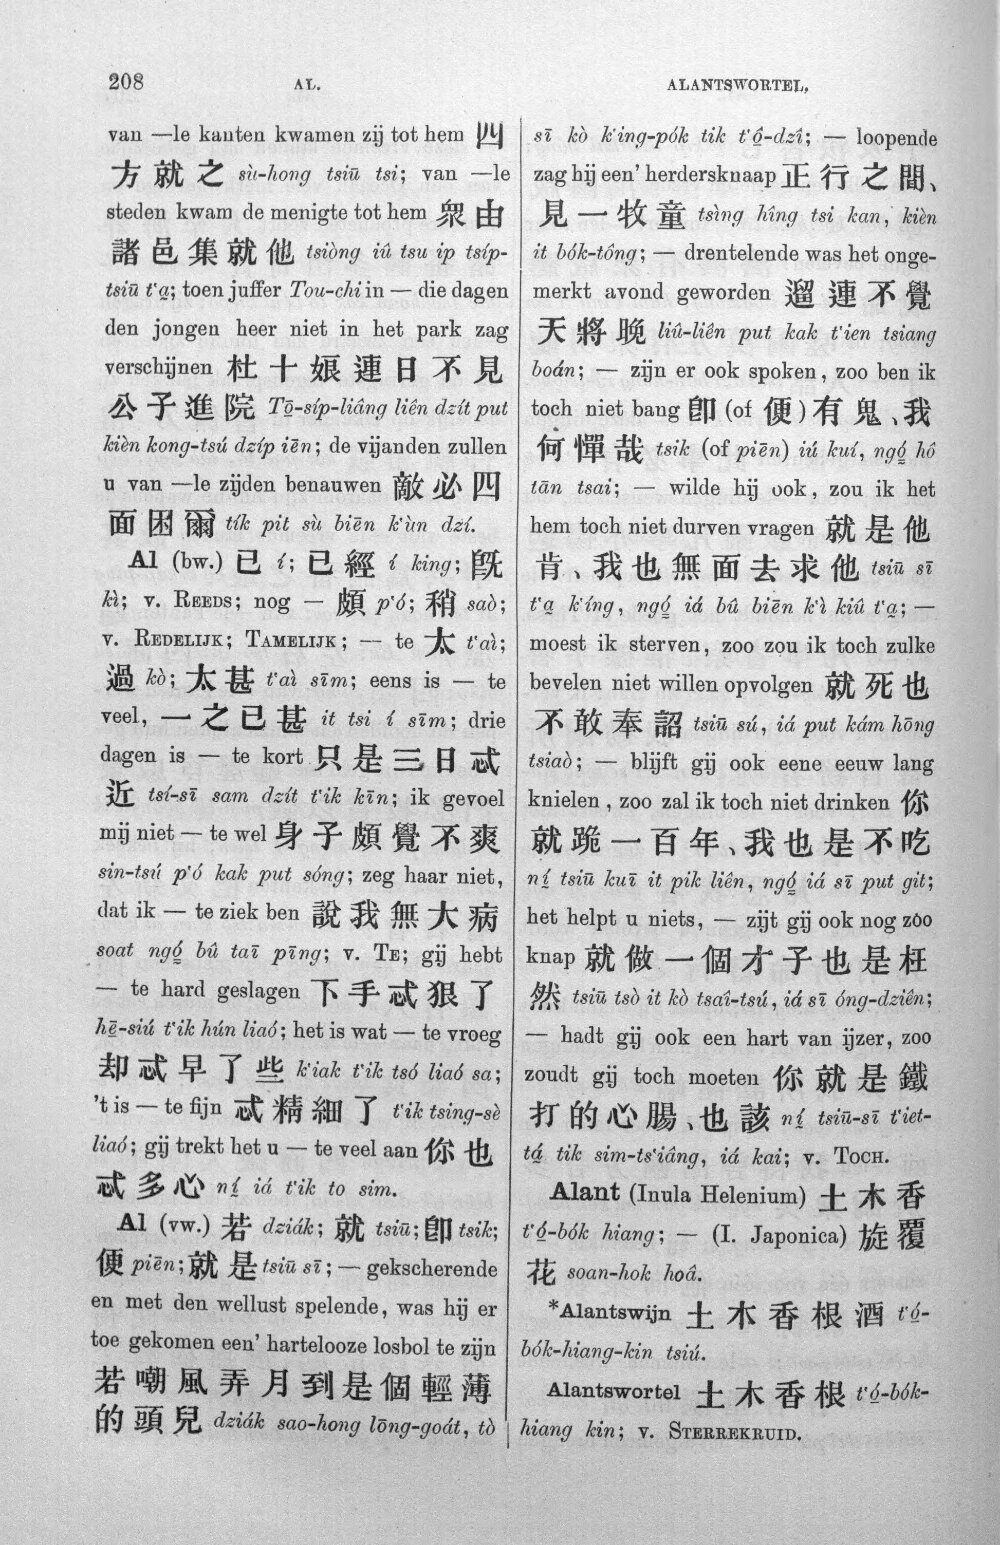 208 AL. ALANTSWORTEL,
van —le kanten kwamen zij tot hem 四
方就之 sù-hong tsiū tsi; van —le
steden kwam de menigte tot hem 衆由
諸邑集就他 tsiòng iû tsu ip tsíp-
tsiū t‘a̤; toen juffer Tou-chi in — die dagen
den jongen heer niet in het park zag
verschijnen 杜十娘連日不見
公子進院 Tō̤-síp-liâng liên dzít put
kièn kong-tsú dzíp iēn; de vijanden zullen
u van —le zijden benauwen 敵必四
面困爾 tík pit sù biēn k‘ùn dzí.
Al (bw.) 已 í; 已經 í king; 旣
kì; v. REEDS; nog — 頗 p‘ó; 稍 saò;
v. REDELIJK; TAMELIJK; — te 太 t‘aì;
過 kò; 太甚 t‘aì sīm; eens is — te
veel, 一之已甚 it tsi í sīm; drie
dagen is — te kort 只是三日忒
近 tsí-sī sam dzít t‘ik kīn; ik gevoel
mij niet — te wel 身子頗覺不爽
sin-tsú p‘ó kak put sóng; zeg haar niet,
dat ik — te ziek ben 說我無大病
soat ngó̤ bû taī pīng; v. TE; gij hebt
— te hard geslagen 下手忒狠了
hē̤-siú t‘ik hún liaó; het is wat — te vroeg
却忒早了些 k‘iak t‘ik tsó liaó sa;
’t is — te fijn 忒精細了 t‘ik tsing-sè
liaó; gij trekt het u — te veel aan 你也
忒多心 ní̤ iá t‘ik to sim.
Al (vw.) 若 dziák; 就 tsiū; 卽 tsik;
便 piēn; 就是 tsiū sī; — gekscherende
en met den wellust spelende, was hij er
toe gekomen een’ hartelooze losbol te zijn
若嘲風弄月到是個輕薄
的頭兒 dziák sao-hong lōng-goát, tò
sī kò k‘ing-pók tik t‘ô̤-dzî; — loopende
zag hij een’ herdersknaap 正行之間、
見一牧童 tsìng hîng tsi kan, kièn
it bók-tông; — drentelende was het onge-
merkt avond geworden 遛連不覺
天將晚 liû-liên put kak t‘ien tsiang
boán; — zijn er ook spoken, zoo ben ik
toch niet bang 卽 (of 便) 有鬼、我
何憚哉 tsik (of piēn) iú kuí, ngó̤ hô
tān tsai; — wilde hij ook, zou ik het
hem toch niet durven vragen 就是他
肯、我也無面去求他 tsiū sī
t‘a̤ k‘íng, ngó̤ iá bû biēn k‘ì kiû t‘a̤; —
moest ik sterven, zoo zou ik toch zulke
bevelen niet willen opvolgen 就死也
不敢奉詔 tsiū sú, iá put kám hōng
tsiaò; — blijft gij ook eene eeuw lang
knielen, zoo zal ik toch niet drinken 你
就跪一百年、我也是不吃
ní̤ tsiū kuī it pik liên, ngó̤ iá sī put git;
het helpt u niets, — zijt gij ook nog zoo
knap 就做一個才子也是枉
然 tsiū tsò it kò tsaî-tsú, iá sī óng-dziên;
— hadt gij ook een hart van ijzer, zoo
zoudt gij toch moeten 你就是鐵
打的心腸、也該 ní̤ tsiū-sī t‘iet-
tá̤ tik sim-ts‘iâng, iá kai; v. TOCH.
Alant (Inula Helenium) 土木香
t‘ó̤-bók hiang; — (I. Japonica) 旋覆
花 soan-hok hoâ.
*Alantswijn 土木香根酒 t‘ó̤-
bók-hiang-kin tsiú.
Alantswortel 土木香根 t‘ó̤-bók-
hiang kin; v. STERREKRUID.